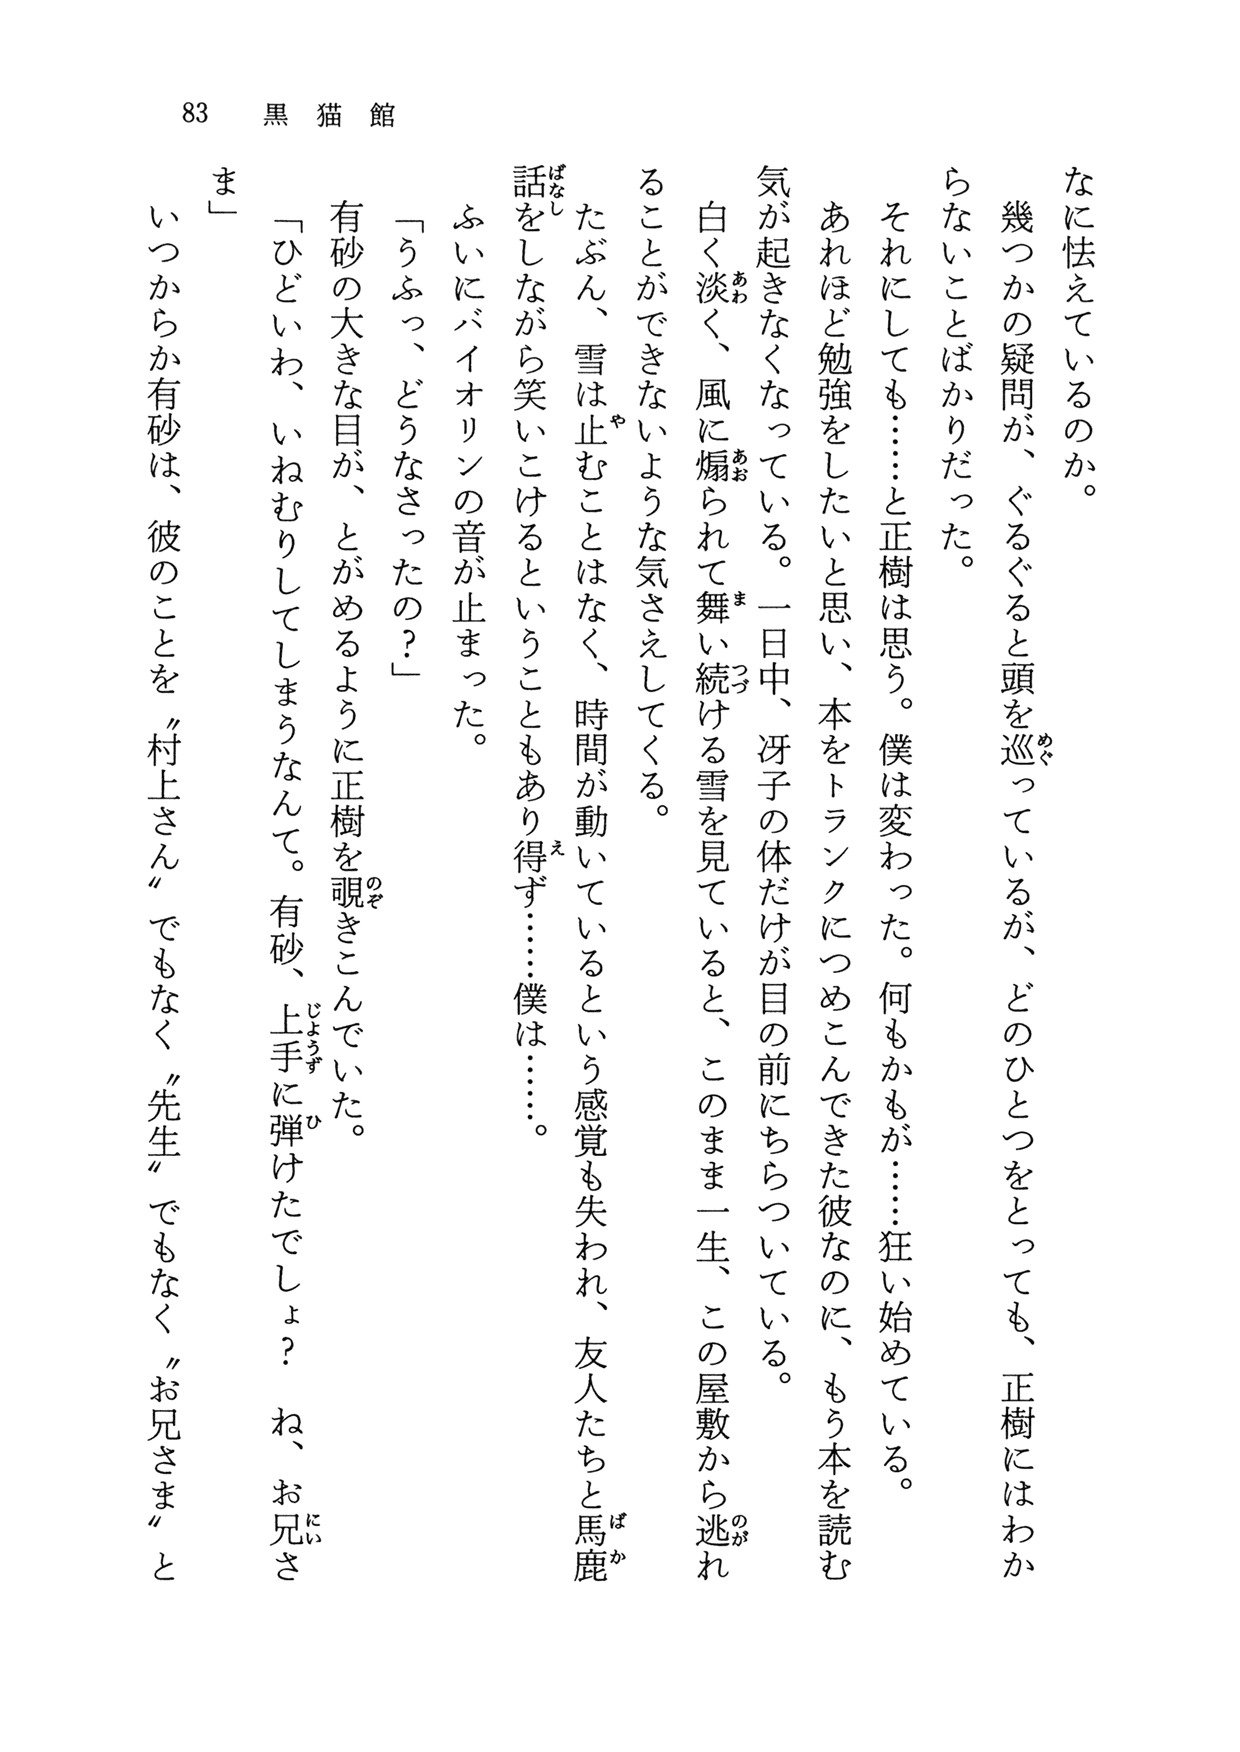 83　黒猫館
なに怯えているのか。
　幾つかの疑問が、ぐるぐると頭を巡っているが、どのひとつをとっても、正樹にはわか
らないことばかりだった。
　それにしても……と正樹は思う。僕は変わった。何もかもが……狂い始めている。
　あれほど勉強をしたいと思い、本をトランクにつめこんできた彼なのに、もう本を読む
気が起きなくなっている。一日中、冴子の体だけが目の前にちらついている。
　白く淡く、風に煽られて舞い続ける雪を見ていると、このまま一生、この屋敷から逃れ
ることができないような気さえしてくる。
　たぶん、雪は止むことはなく、時間が動いているという感覚も失われ、友人たちと馬鹿
話をしながら笑いこけるということもあり得ず……僕は……。
　ふいにバイオリンの音が止まった。
「うふっ、どうなさったの？」
　有砂の大きな目が、とがめるように正樹を覗きこんでいた。
「ひどいわ、いねむりしてしまうなんて。有砂、上手に弾けたでしょ？　ね、お兄さ
ま」
　いつからか有砂は、彼のことを〝村上さん〟でもなく〝先生〟でもなく〝お兄さま〟と